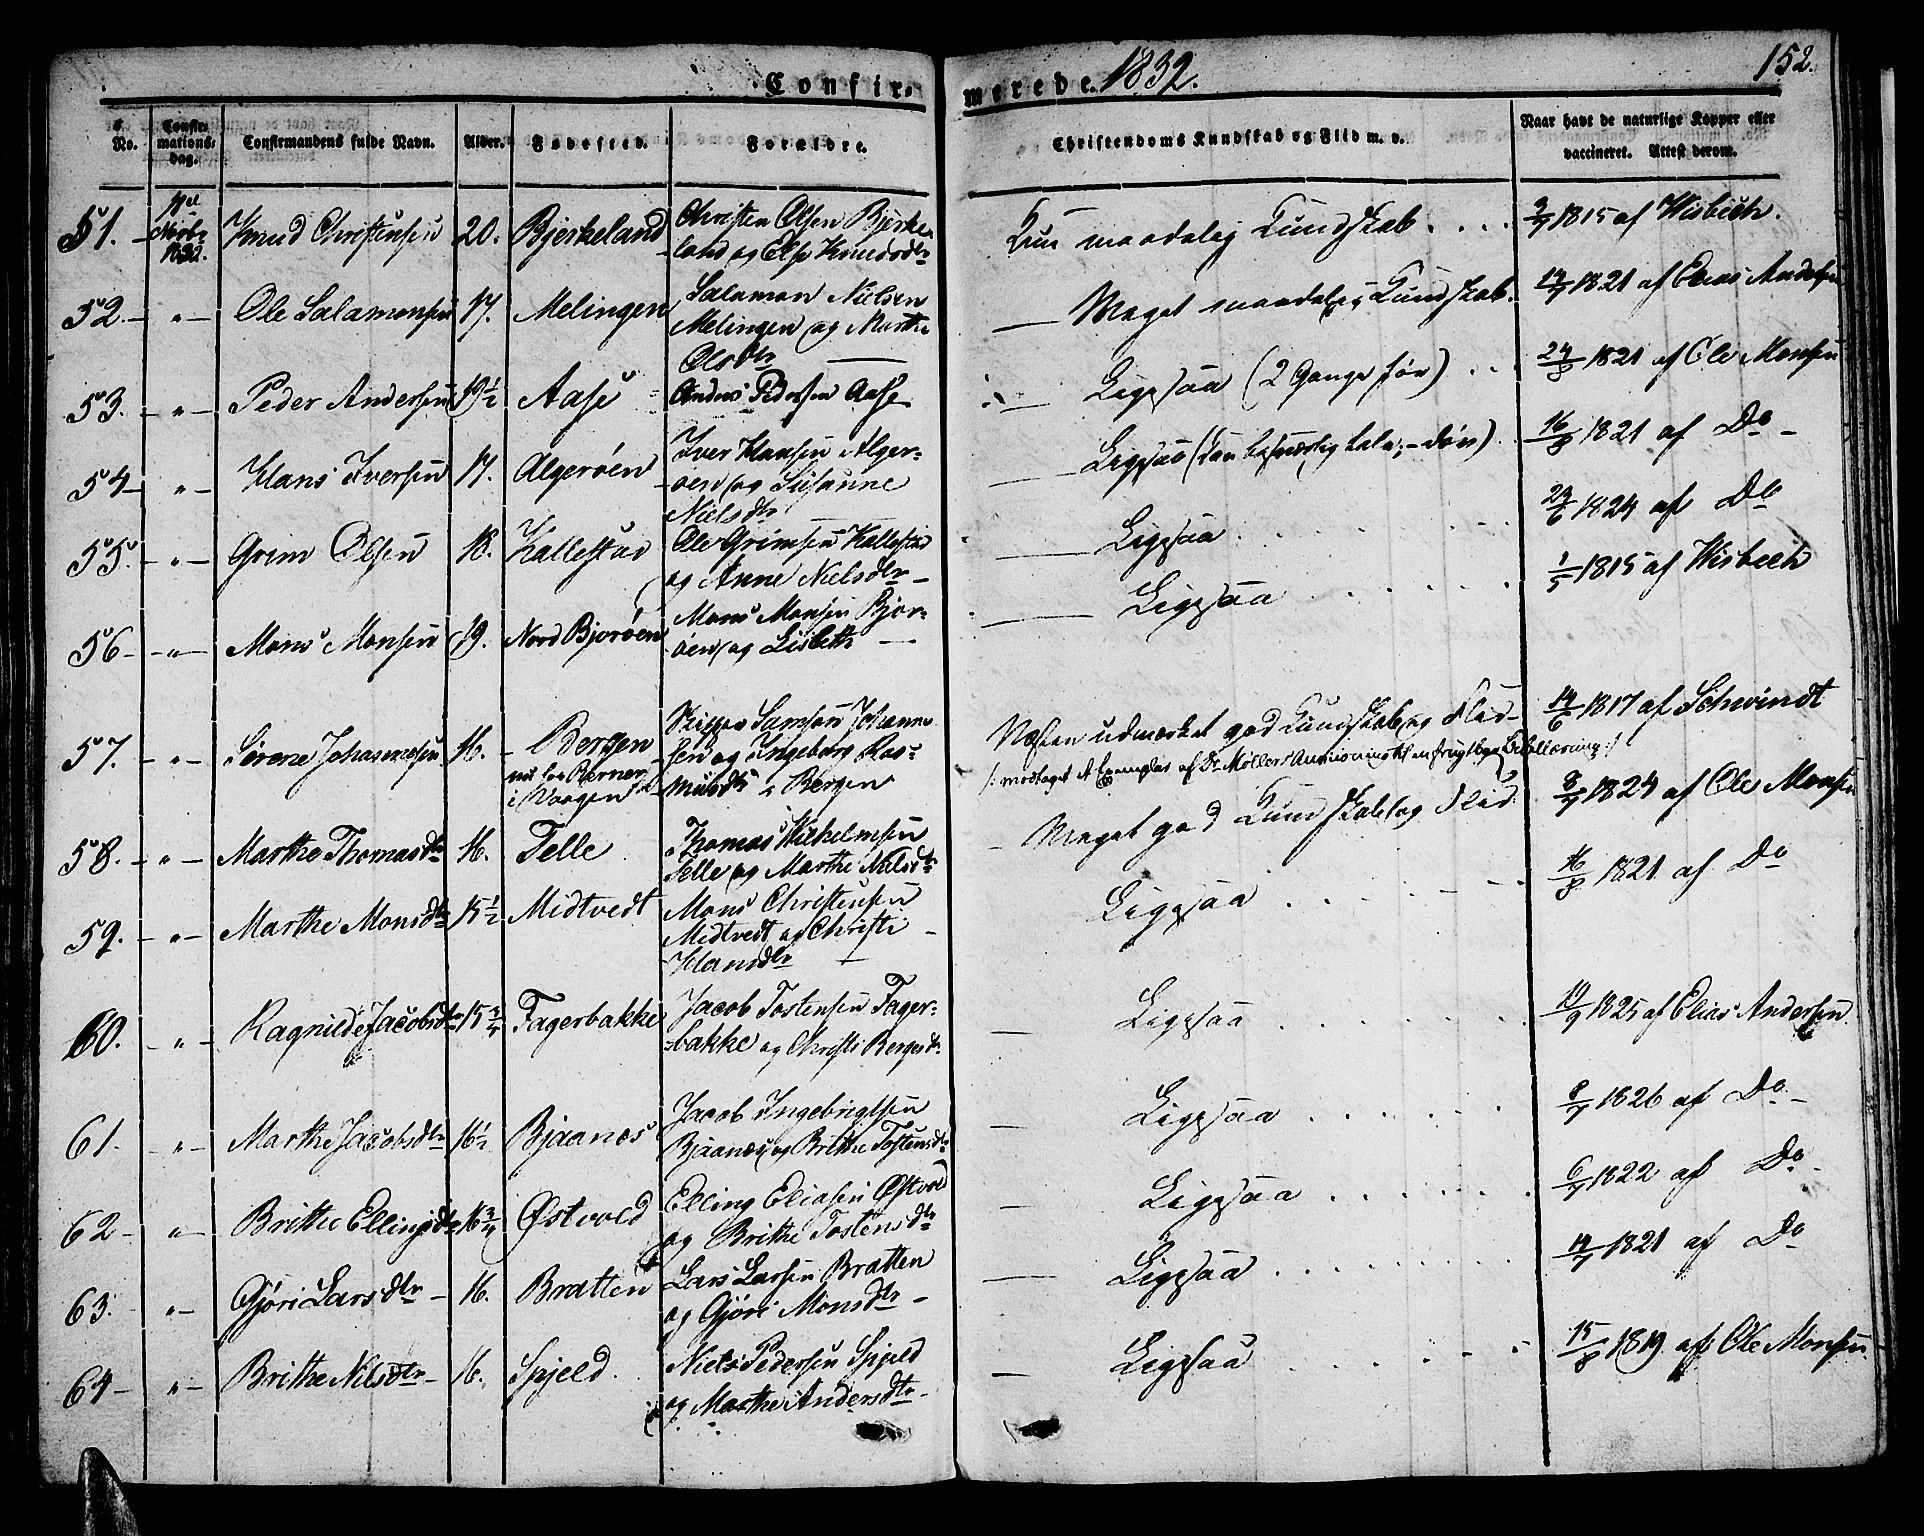 Confir-
merede. 1832.
152.
No.
Confir-
mations-
dag.
Confirmandens fulde Navn.
Alder.
Fødested.
Forældre.
Christendoms Kundskab og Flid m. v.
Naar havt de naturlige Kopper eller
vaccineret. Attest derom.
51. Novbr 1832. Knud Christensen 20. Bjerkeland Christen Olsen Bjerke-
land og Else Knudsdtr
Kun maadelig Kundskab . . . . 1815 af Wisbech.
52. — " — Ole Salamonsen 17. Melingen Salamon Nielsen
Melingen og Marthe
Olsdtr —
— Meget maadelig Kundskab. 14/7 1821 af Elias Andersen
53. — " — Peder Andersen 19½ Aase Anders Pedersen Aase
— Ligesaa (2 Gange før) . . . 24/8 1821 af Ole Monsen
54 — " — Hans Iversen 17. Algerøen Iver Hansen Alger-
øen og Susanne
Nielsdtr —
— Ligesaa (kan besværlig tale; — døv) . 16/8 1821 af Do —
55. — " — Grim Olsen 18. Kallestad Ole Grimsen Kallestad
og Anne Nielsdtr —
— Ligesaa . . . . . . . 24/6 1824 af Do
56 — " — Mons Monsen 19. Nord Bjorøen Mons Monsen Bjor-
øen og Lisbeth —
— Ligesaa . . . . . 1/5 1815 af Wisbech
57. — " — Sørene Johannesen 16. — Bergen
nu hos Berner
i Vaagen
Skipper Samson Johanne-
sen og Ingeborg Ras-
musdtr i Bergen
Næsten udmærket god Kundskab og Flid —
/: modtaget et Exemplar af Dr Møllers Anviisning til en frugtbar Bibellæsning :/
14/6 1817 af Schwindt
58. — " — Marthe Thomasdtr 16. Telle Thomas Wilhelmsen
Telle og Marthe Nielsdtr
— Meget god Kundskab og Flid. 8/7 1824 af Ole Monsen
59. — " — Marthe Monsdtr 15½ Midtvedt Mons Christensen
Midtvedt og Christi —
Hansdtr —
Ligesaa . . . . . 16/8 1821 af Do
60. — " — Ragnilde Jacobsdtr 15¾ Fagerbakke Jacob Tostensen Fager-
bakke og Christi Bergesdtr
— Ligesaa . . . . . . . 19/9 1825 af Elias Andersen.
61. " — Marthe Jacobsdtr 16½ Bjaanes Jacob Ingebrigtsen
Bjaanes og Brithe Tostensdtr
— Ligesaa . . . . . . 8/7 1826 af Do —
62 — " — Brithe Ellingsdtr 16¾ Østvold Elling Eliasen Østvold
og Brithe Tostensdtr
— Ligesaa . . . . . . 6/7 1822 af Do —
63. " — Gjøri Larsdtr — 16. Bratten Lars Larsen Bratten
og Gjøri Monsdtr —
— Ligesaa . . . . . . . 14/7 1821 af Do
64 — " — Brithe Nilsdtr — 16. Spjeld. Niels Pedersen Spjeld
og Marthe Andersdtr —
— Ligesaa . . . . . 15/8 1819 af Ole Monsen.